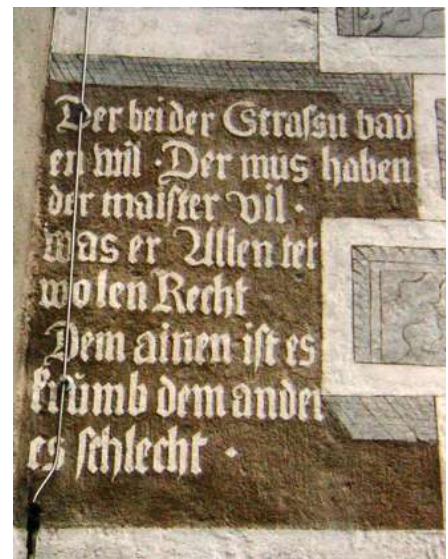 Der bei der Strassn baŭ
en wil · Der mus haben
der maister vil ·
was er Allen tet
wolen Recht
Dem ainen ist es
krŭmb dem ander
es schlecht ·